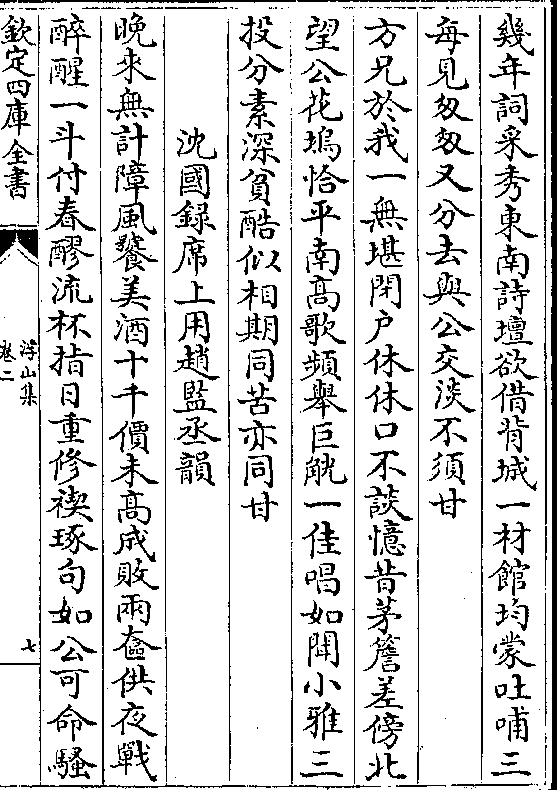 幾年詞采秀東南詩壇欲借背城一材館均蒙吐哺三
每見匆匆又分去與公交淡不須甘
方兄於我一無堪閉户休休口不談憶昔茅簷差傍北
望公花塢恰平南髙歌頻舉巨觥一佳唱如聞小雅三
投分素深貧酷似相期同苦亦同甘
沈國録席上用趙監丞韻
晚來無計障風饕美酒十千價未髙成敗兩奩供夜戰
醉醒一斗付春醪流杯指日重修禊琢句如公可命騷
欽定四庫全書
浮山集
卷二
七